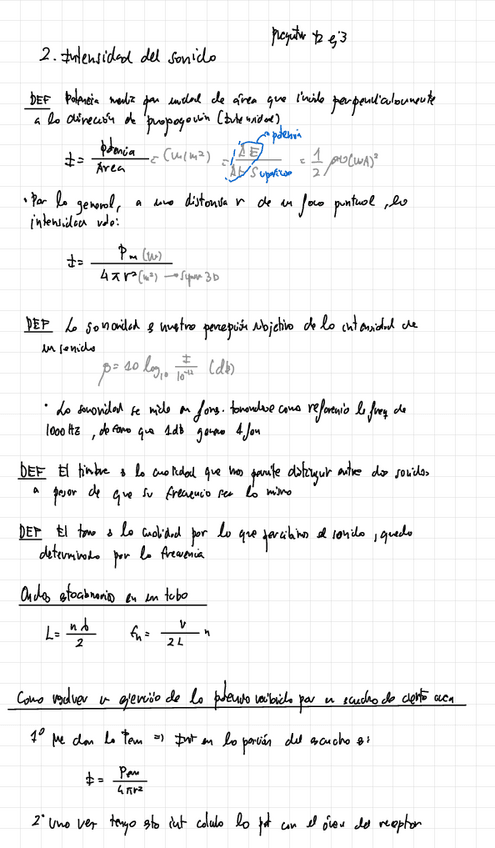 2. Intensidad del sonido
DEF Potencia media por unidad de área que incide perpendicularmente
a la dirección de propagación (Intensidad)
potencia
I = potencia / Área = (W/m²) = ΔE / Δt S superficie = 1/2 ρv(wA)²
• Por lo general, a una distancia r de un foco puntual, la
intensidad vale:
I = Pm (W) / 4πr² (m²) → 3D
DEF La sonoridad es nuestra percepción subjetiva de la intensidad de
un sonido
β = 10 log₁₀ I / 10⁻¹² (db)
• La sonoridad se mide en fons. tomandose como referencia la freq de
1000 Hz, de forma que 1db 1 fon
DEF El timbre es la cualidad que nos permite distinguir entre dos sonidos
a pesar de que su frecuencia sea la misma
DEF El tono es la cualidad por la que percibimos el sonido, queda
determinado por la frecuencia
Ondas estacionarias en un tubo
L = nλ / 2 fn = v / 2L n
Como resolver un ejercicio de la potencia recibida por un escucho de cierto area
1º Me dan la Pem => Int en la posición del escucho es:
I = Pem / 4πr²
2º Una vez tengo esta int calculo la pot con el área del receptor